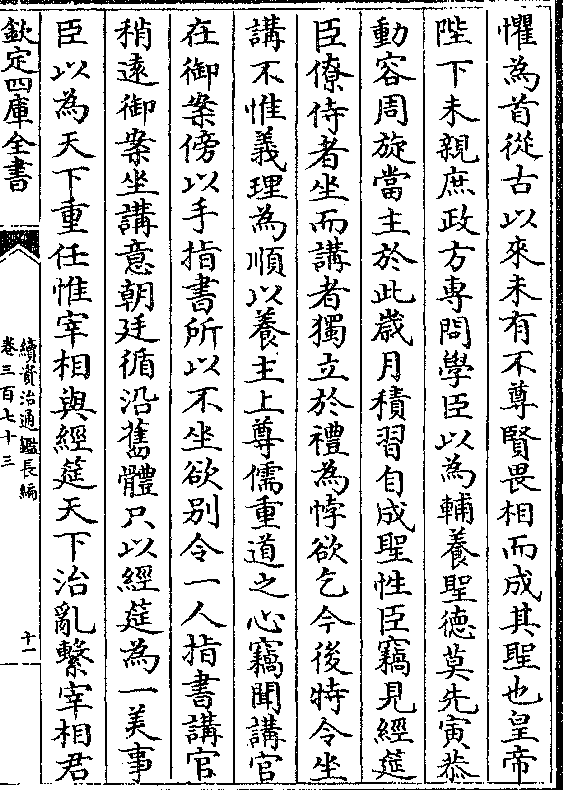 懼為首從古以來未有不尊賢畏相而成其聖也皇帝
陛下未親庶政方專問學臣以為輔養聖德莫先寅恭
動容周旋當主於此歲月積習自成聖性臣竊見經筵
臣僚侍者坐而講者獨立於禮為悖欲乞今後特令坐
講不惟義理為順以養主上尊儒重道之心竊聞講官
在御案傍以手指書所以不坐欲别令一人指書講官
稍遠御案坐講意朝廷循沿舊體只以經筵為一美事
臣以為天下重任惟宰相與經筵天下治亂繫宰相君
欽定四庫全書
續資治通鑑長編
卷三百七十三
十一